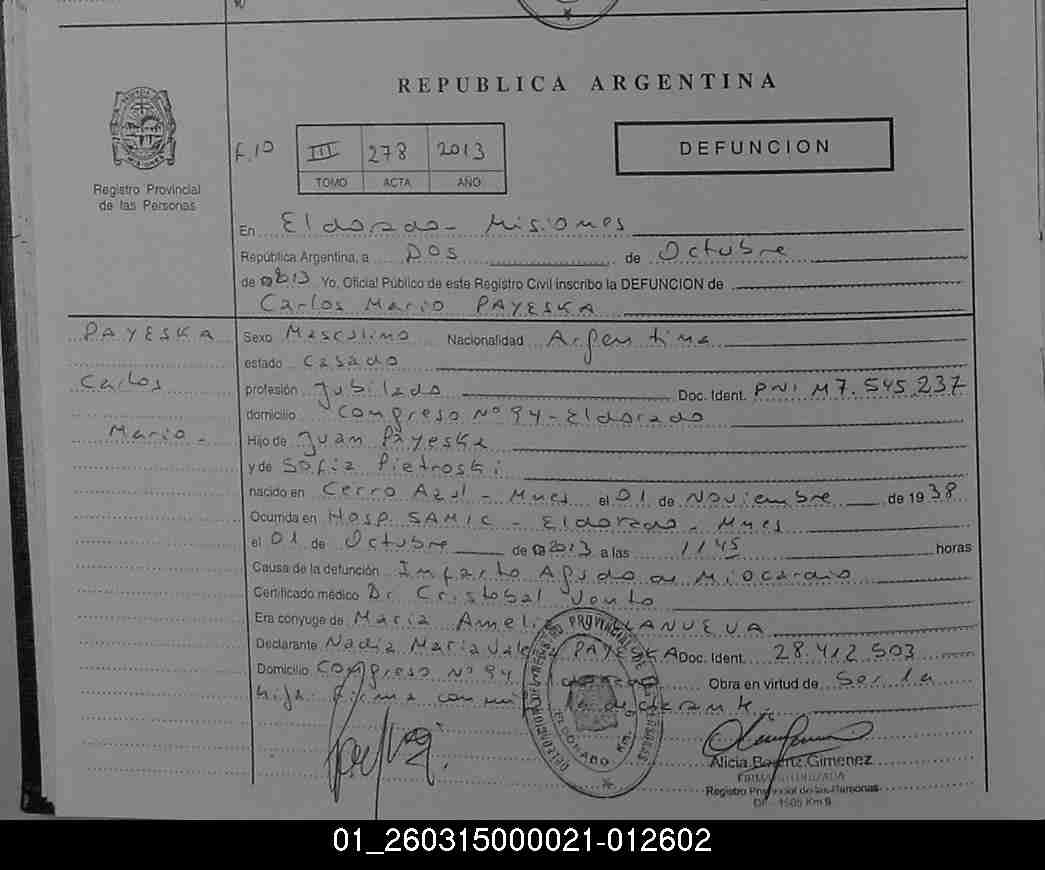 REPUBLICA ARGENTINA
F.10 III 278 2013
TOMO ACTA AÑO
DEFUNCION
Registro Provincial
de las Personas
En Eldorado - Misiones
República Argentina, a DOS de Octubre
de 2013 Yo. Oficial Público de este Registro Civil inscribo la DEFUNCION de
Carlos Mario PAYESKA
PAYESKA
Carlos
Mario -
Sexo Masculino Nacionalidad Argentina
estado Casado
profesión Jubilado Doc. Ident. DNI M7.545.237
domicilio Congreso Nº 94 - Eldorado
Hijo de Juan Payeska
y de Sofia Pietroski
nacido en Cerro Azul - Mnes el 01 de Noviembre de 1938
Ocurrida en Hosp. SAMIC - Eldorado - Mnes
el 01 de Octubre de 2013 a las 11 45 horas
Causa de la defunción Infarto Agudo de Miocardio
Certificado médico Dr Cristobal
Era cónyuge de Maria Amelia VILLANUEVA
Declarante Nadia Maria PAYESKA Doc. Ident. 28.412.503
Domicilio Congreso Nº 94 Eldorado Obra en virtud de Ser la
hija firma la declarante.
ELDORADO Km. 9
Alicia Benitez Gimenez
FIRMA AUTORIZADA
Registro Provincial de las Personas
1505 Km 9
01_260315000021-012602